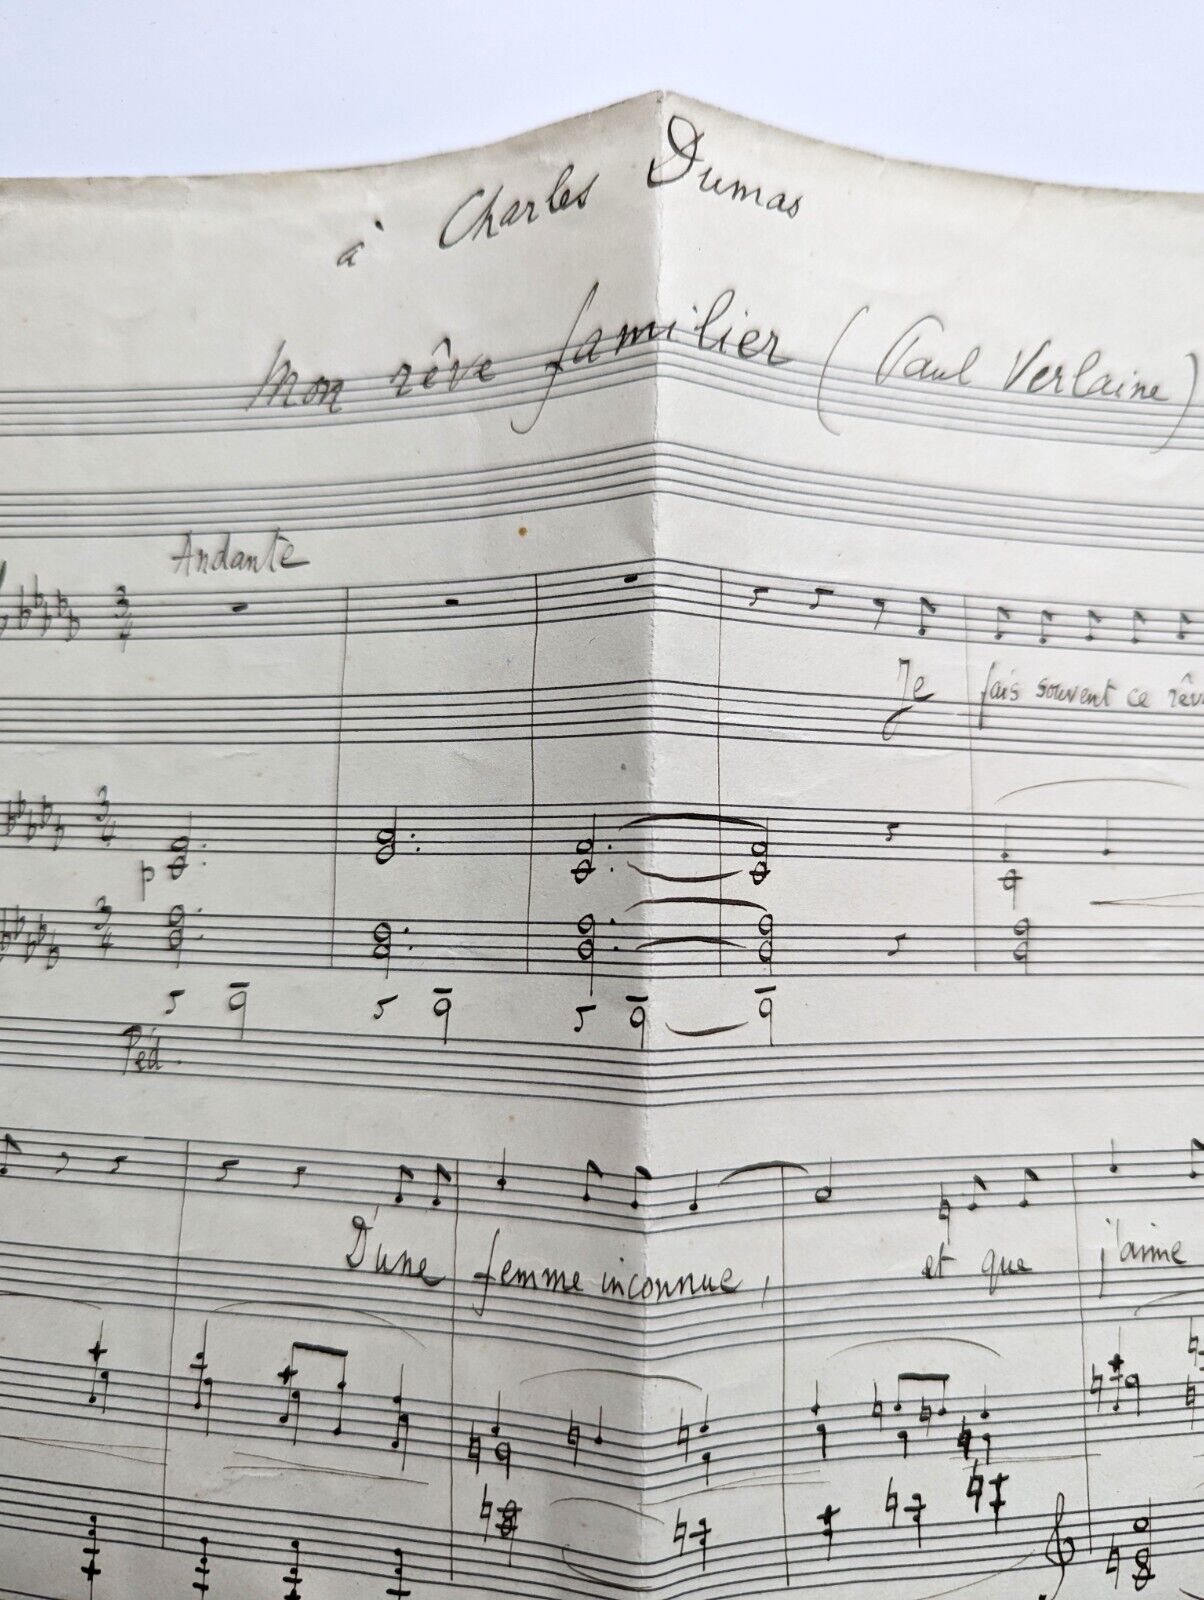 à Charles Dumas
Mon rêve familier (Paul Verlaine)
Andante
3
4
Je fais souvent ce rêv
3
4
p
3
4
Péd.
D'une femme inconnue, et que j'aime